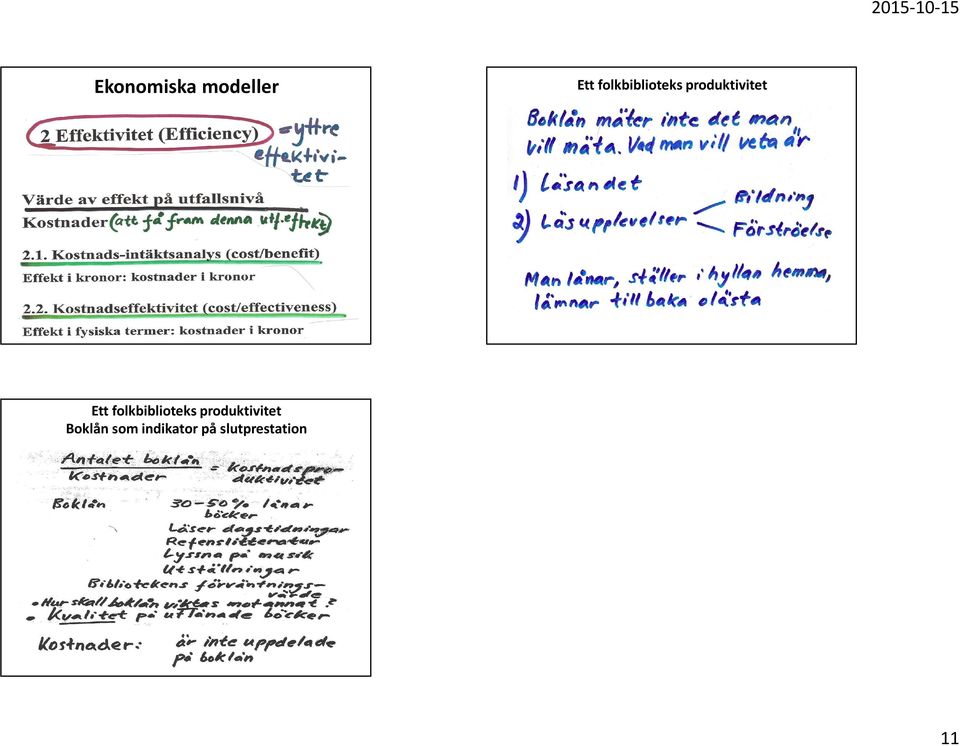 2015-10-15
Ekonomiska modeller
2 Effektivitet (Efficiency) = yttre
effektivi-
tet
Värde av effekt på utfallsnivå
Kostnader (att få fram denna utf.effekt)
2.1. Kostnads-intäktsanalys (cost/benefit)
Effekt i kronor: kostnader i kronor
2.2. Kostnadseffektivitet (cost/effectiveness)
Effekt i fysiska termer: kostnader i kronor
Ett folkbiblioteks produktivitet
Boklån mäter inte det man
vill mäta. Vad man vill veta är
1) Läsandet
2) Läsupplevelser
Bildning
Förströelse
Man lånar, ställer i hyllan hemma,
lämnar tillbaka olästa
Ett folkbiblioteks produktivitet
Boklån som indikator på slutprestation
Antalet boklån = Kostnadspro-
Kostnader duktivitet
Boklån 30-50% lånar
böcker
Läser dagstidningar
Refenslitteratur
Lyssna på musik
Utställningar
Bibliotekens förväntnings-
värde
• Hur skall boklån viktas mot annat?
• Kvalitet på utlånade böcker
Kostnader: är inte uppdelade
på boklån
11